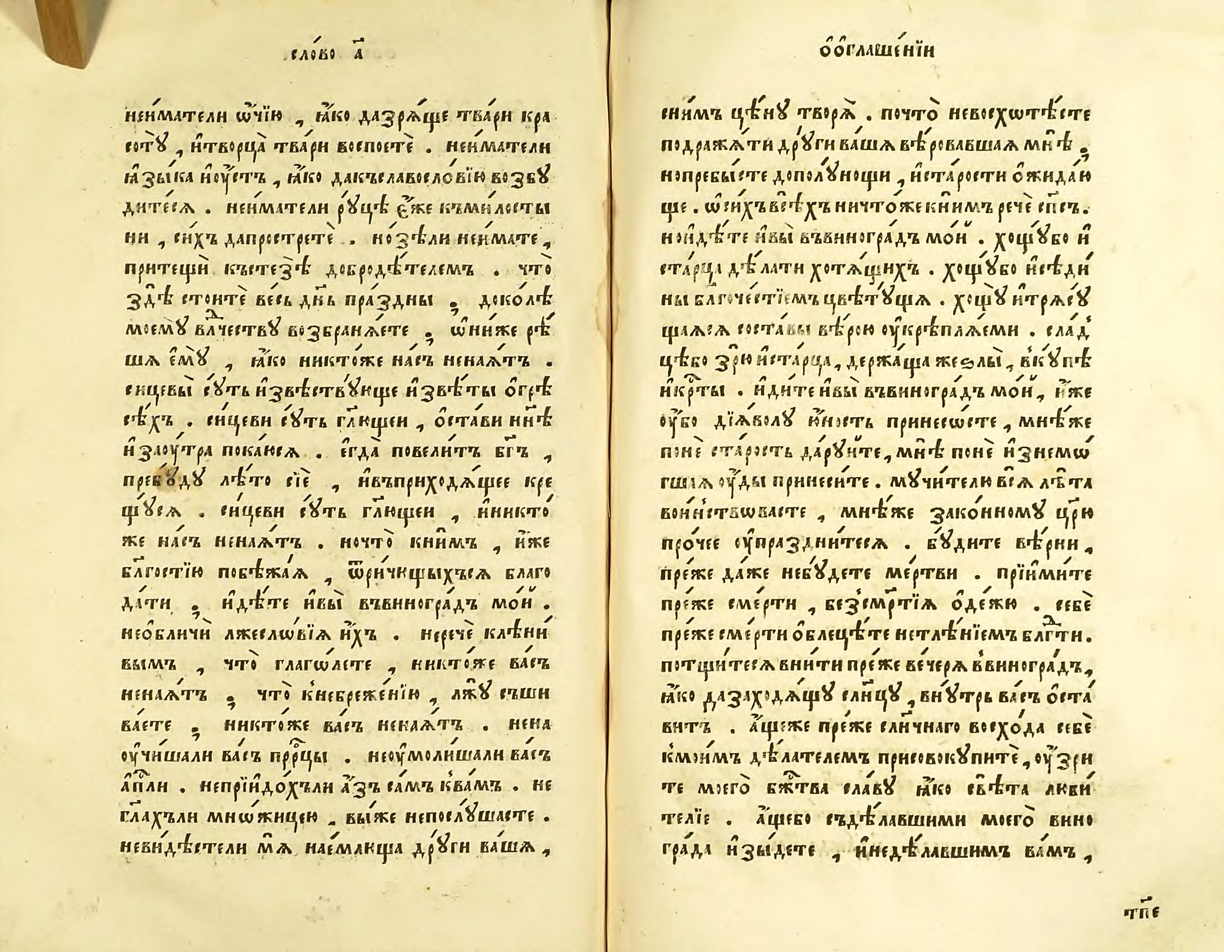 сло́во а҃
неи́матели ѻ҆́чїю , ꙗ҆́ко дазрѧ́ще тва́ри кра
соту̀ , и҆творца̀ тва́ри воспое́те . неи́матели
ꙗ҆зы́ка иоу҆́стъ , ꙗ҆́ко дакъславосло́вїю возбꙋ
дитесѧ . неи́матели рꙋ́цѣ є҆́же къми́лосты
ни , си́хъ дапростретѐ . но́зѣли неи́мате ,
притещѝ къстезѣ̀ добродѣ́телемъ . что̀
здѣ̀ стоитѐ весь дн҃ь пра́здны ; доко́лѣ
моемꙋ̀ влⷣчествꙋ возбранѧ́ете ; ѡ҆ни́же рѣ́
шѧ є҆мꙋ̀ , ꙗ҆́ко никто́же на́съ ненаѧ́тъ .
сицевы̀ сꙋ́ть и҆звѣ́ствꙋюще и҆звѣ́ты о҆грѣ
сѣ́хъ . си́цеви сꙋ́ть гл҃ющеи , о҆ста́ви нн҃ѣ
и҆заоу́тра пока́юсѧ . е҆гда̀ повели́тъ бг҃ъ ,
пребꙋ́дꙋ лѣ́то сїѐ , и҆въприходѧ́щее кре
щꙋ́сѧ . си́цеви сꙋ́ть гл҃ющеи , и҆никто́
же на́съ ненаѧ́тъ . но́что̀ кни́мъ , и҆́же
бл҃гостїю побѣжа́ѧ , ѿричю́щыхъсѧ благо
да́ти ; и҆дѣ́те и҆вы̀ въвиногра́дъ мо́й .
необличѝ лжесло́вїѧ и҆́хъ . неречѐ клѣни́
вымъ , что̀ глаго́лете , никто́же ва́съ
ненаѧ́тъ ; что̀ к̾небреже́нїю , лжꙋ̀ съши
ва́ете ; никто́же ва́съ ненаѧ́тъ . нена
оу҆чи́шали ва́съ прⷪ҇рцы . неоу҆моли́шали ва́съ
а҆пⷭ҇ли . непрїидо́хъли а҆́зъ са́мъ к̾ва́мъ . не
гл҃а́хъли мно́жицею , вы́же непослꙋ́шаете .
неви́дѣстели мѧ̀ нае́млюща дрꙋ́ги ва́шѧ ,
о҆ѻ҆глаше́нїи
сни́мъ цѣ́нꙋ творѧ̀ . почто̀ невосхотѣ́сте
подража́ти дрꙋ́ги ва́шѧ вѣ́ровавшаѧ мнѣ̀ ;
нопребы́сте дополꙋ́нощи , и҆ста́рости о҆жида́ю
ще . ѡ҆си́хъ всѣ́хъ ничто́же кни́мъ речѐ сп҃съ .
но и҆дѣ́те и҆вы̀ въвиногра́дъ мо́й . хощꙋ́бо и҆
ста́рца дѣ́лати хотѧ́щихъ . хощꙋ́бо и҆сѣди
ны̀ бл҃гоче́стїемъ цвѣтꙋ́щѧ . хощꙋ̀ и҆трѧсꙋ́
щаѧсѧ соста́вы вѣ́рою оу҆крѣплѧ́еми . сла́д
цѣ́бо зрю̀ и҆ста́рца , держа́ща жезлы̀ , в̾кꙋ́пѣ
и҆крⷭ҇ты̀ . и҆ди́те и҆вы̀ въвиногра́дъ мо́й , и҆́же
оу҆́бо дїѧ́волꙋ ю҆́ность принесо́сте , мнѣ́же
понѐ ста́рость дарꙋ́йте , мнѣ̀ понѐ и҆знемо́
гшаѧ оу҆́ды принеси́те . мꙋчи́телю всѧ̀ лѣ́та
во́инствовасте , мнѣ́же зако́нномꙋ цр҃ю̀
про́чее оу҆праздни́тесѧ . бꙋ́дите вѣ́рни ,
пре́же да́же небꙋ́дете ме́ртви . прїими́те
пре́же сме́рти , безсме́ртїѧ о҆де́жю . себѐ
пре́же сме́рти о҆блецѣ́те нетлѣ́нїемъ блгⷣти .
потщи́тесѧ вни́ти пре́же ве́черѧ в̾виногра́дъ ,
ꙗ҆́ко дазаходѧ́щꙋ сл҃нцꙋ , внꙋ́трь ва́съ о҆ста
витъ . а҆́щеже пре́же сл҃нчнаго восхо́да себѐ
к̾мои́мъ дѣ́лателемъ присовокупитѐ , оу҆́зри
те моего̀ бж҃тва̀ сла́вꙋ ꙗ҆́ко свѣ́та люби́
телїе . а҆́щебо съдѣ́лавшими моего̀ вино
гра́да и҆зы́дете , и҆недѣ́лавшимъ ва́мъ ,